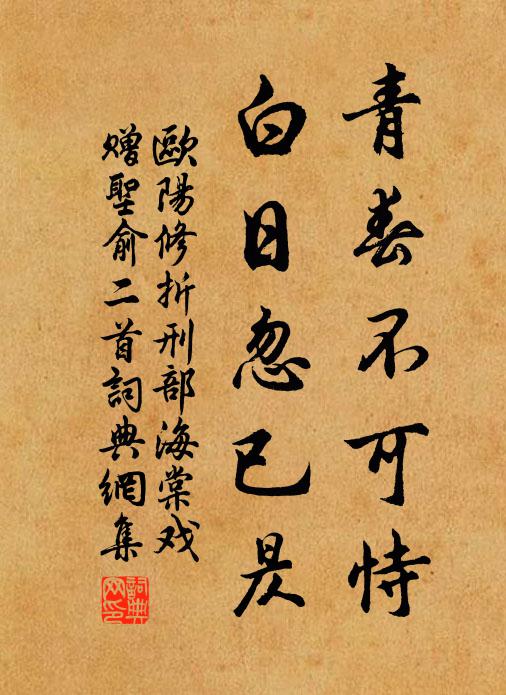 青春不可恃
白日忽已昃
歐陽修折刑部海棠戏
贈聖俞二首詞典網集
詞典
网印